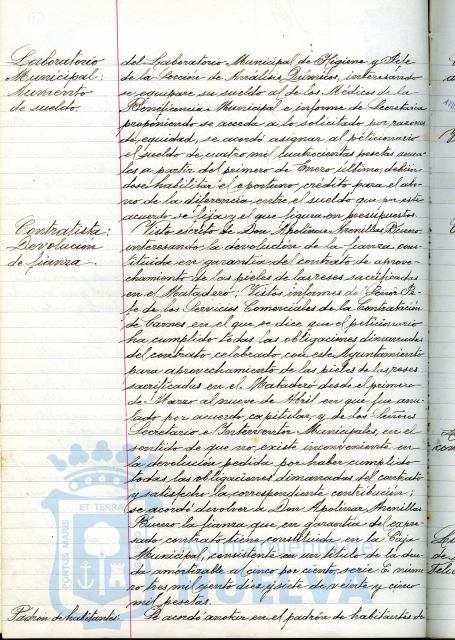 Laboratorio
Municipal:
Aumento
de sueldo.
del Laboratorio Municipal de Higiene y Jefe
de la Sección de Análisis Químicos, interesando
se equipare su sueldo al de los Médicos de la
Beneficencia Municipal e informe de Secretaría
proponiendo se acceda a lo solicitado por razones
de equidad, se acordó asignar al peticionario
el sueldo de cuatro mil cuatrocientas pesetas anua-
les a partir del primero de Enero último, debién-
dose habilitar el oportuno crédito para el abo-
no de la diferencia entre el sueldo que por este
acuerdo se fija y el que figura en presupuestos.
Contratista:
Devolución
de fianza.
Visto escrito de Don Apolinar Arenillas Bueno
interesando la devolución de la fianza cons-
tituida en garantía del contrato de aprove-
chamiento de las pieles de las reses sacrificadas
en el Matadero; Vistos informes del Señor Je-
fe de los Servicios Comerciales de la Contratación
de Carnes en el que se dice que el peticionario
ha cumplido todas las obligaciones dimanadas
del contrato celebrado con este Ayuntamiento
para aprovechamiento de las pieles de las reses
sacrificadas en el Matadero desde el primero
de Marzo al nueve de Abril en que fue anu-
lado por acuerdo capitular, y de los Señores
Secretario e Interventor Municipales, en el
sentido de que no existe inconveniente en
la devolución pedida por haber cumplido
todas las obligaciones dimanadas del contrato
y satisfecho la correspondiente contribución;
se acordó devolver a Don Apolinar Arenillas
Bueno la fianza que, en garantía del expre-
sado contrato tiene constituida en la Caja
Municipal, consistente en un título de la deu-
da amortizable al cinco por ciento, serie E núme-
ro tres mil ciento diez y siete de veinte y cinco
mil pesetas.
Padrón de habitantes:
Se acordó anotar en el padrón de habitantes de
PORTUS MARIS
ET TERRAE
HUELVA